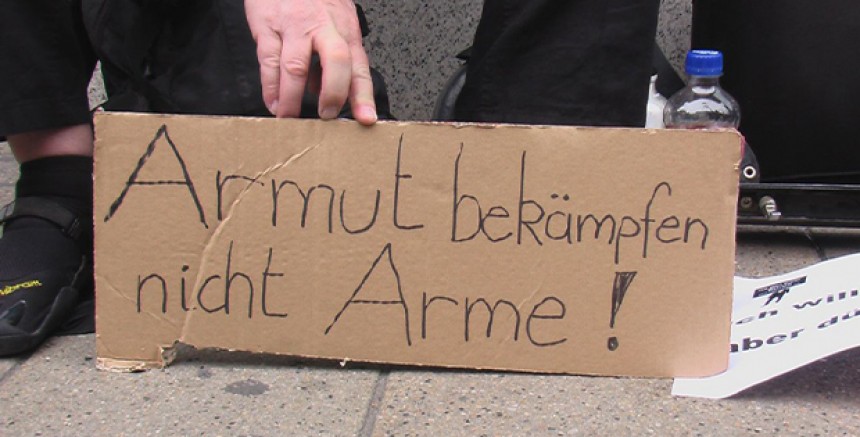 Armut bekämpfen
nicht Arme!
ch will
aber dü